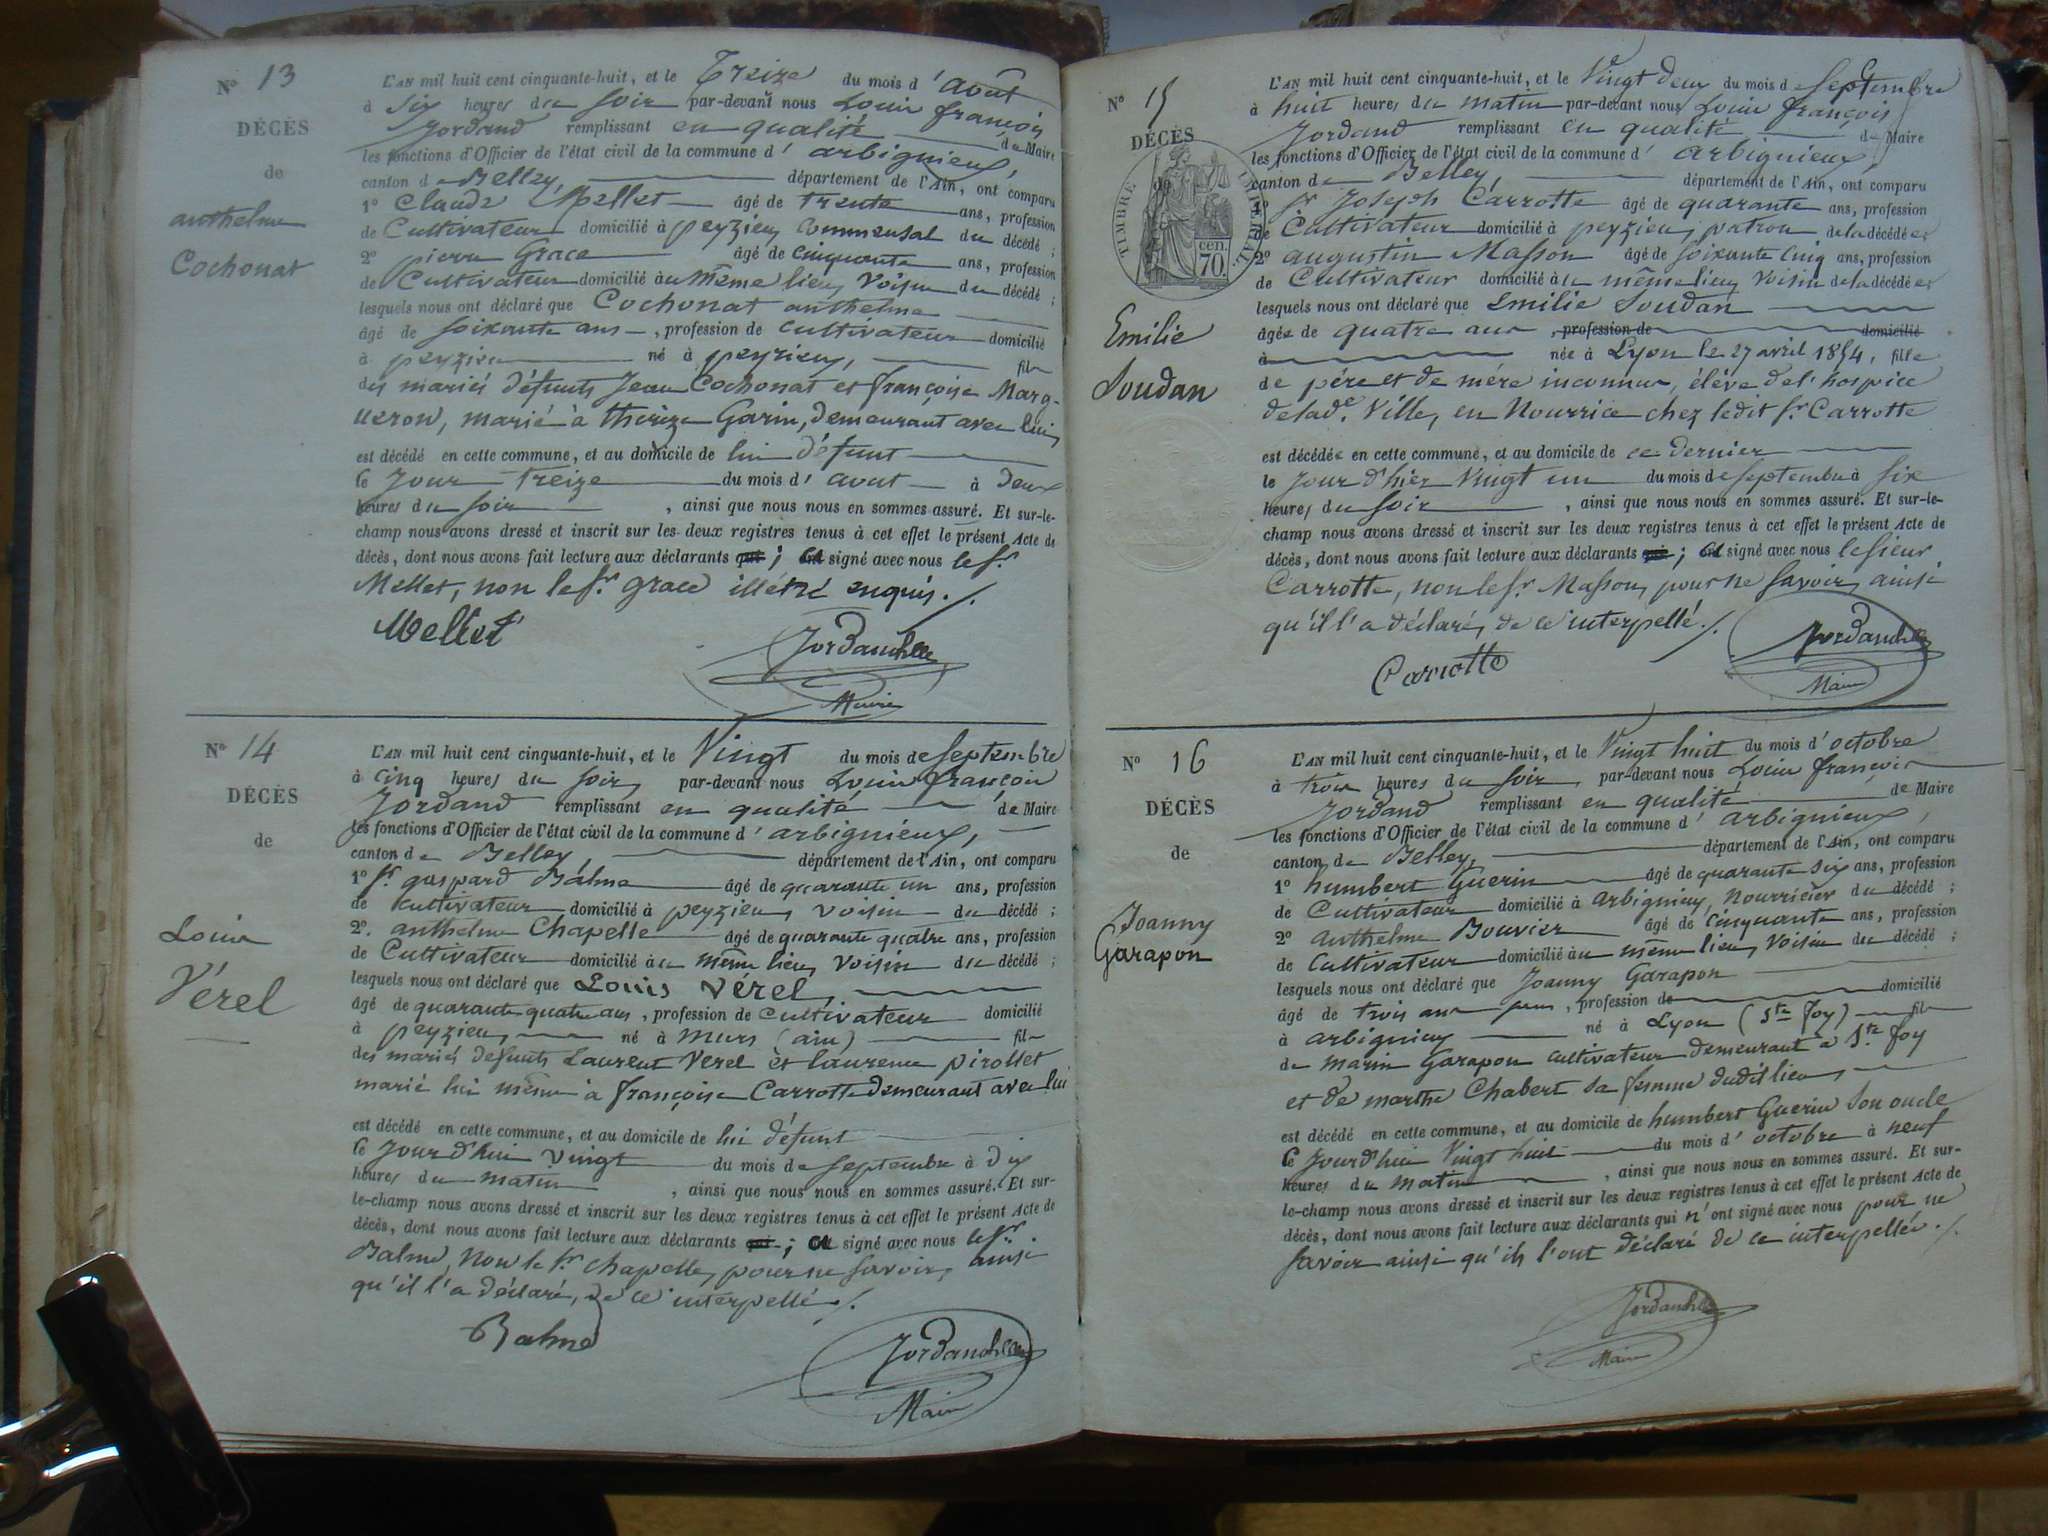 N° 13
DÉCÈS
de
anthelme
Cochonat
L'AN mil huit cent cinquante-huit, et le Treize du mois d'avut
à Six heures du Soir par-devant nous Louis françois
Jordand remplissant en qualité de Maire
les fonctions d'Officier de l'état civil de la commune d'arbignieux,
canton de Belley, département de l'Ain, ont comparu
1° Claude Mellet âgé de trente ans, profession
de Cultivateur domicilié à peyzieu, commensal du décédé ;
2° pierre Grace âgé de cinquante ans, profession
de Cultivateur domicilié au même lieu, voisin du décédé ;
lesquels nous ont déclaré que Cochonat anthelme
âgé de soixante ans, profession de cultivateur domicilié
à peyzieu né à peyzieu, fils
des mariés défunts Jean Cochonat et françoise Marg-
ueron, marié à thérèze Garin, demeurant avec lui,
est décédé en cette commune, et au domicile de lui défunt
Ce Jour treize du mois d'avut à Deux
heures du soir, ainsi que nous nous en sommes assuré. Et sur-le-
champ nous avons dressé et inscrit sur les deux registres tenus à cet effet le présent Acte de
décès, dont nous avons fait lecture aux déclarants qui ; et signé avec nous le Sr.
Mellet, non le Sr. Grace illétré enquis ./.
Mellet
Jordand
Maire
N° 14
DÉCÈS
de
Louis
Vérel
L'AN mil huit cent cinquante-huit, et le Vingt du mois de Septembre
à cinq heures du soir, par-devant nous Louis françois
Jordand remplissant en qualité de Maire
les fonctions d'Officier de l'état civil de la commune d'arbignieux,
canton de Belley, département de l'Ain, ont comparu
1° Sr. gaspard Balme âgé de quarante un ans, profession
de cultivateur domicilié à peyzieu, voisin du décédé ;
2°. anthelme Chapelle âgé de quarante quatre ans, profession
de Cultivateur domicilié au même lieu, voisin du décédé ;
lesquels nous ont déclaré que Louis Vérel,
âgé de quarante quatre ans, profession de cultivateur domicilié
à peyzieu, né à Murs (ain) fils
des mariés défunts Laurent Verel et laurence pirollet
marié lui même à françoise Carrotte demeurant avec lui
est décédé en cette commune, et au domicile de lui défunt
Ce Jourd'hui vingt du mois de septembre à dix
heures du matin, ainsi que nous nous en sommes assuré. Et sur-
le-champ nous avons dressé et inscrit sur les deux registres tenus à cet effet le présent Acte de
décès, dont nous avons fait lecture aux déclarants qui ; et signé avec nous le Sr.
Balme, Non le Sr. Chapelle, pour ne savoir, ainsi
qu'il l'a déclaré, de ce interpellé ./.
Balme
Jordand
Maire
N° 15
DÉCÈS
de
TIMBRE IMPÉRIAL
70 cen.
Emilie
Soudan
L'AN mil huit cent cinquante-huit, et le Vingt deux du mois de Septembre
à huit heures du matin par-devant nous Louis françois
Jordand remplissant en qualité de Maire
les fonctions d'Officier de l'état civil de la commune d'arbignieux,
canton de Belley, département de l'Ain, ont comparu
1° Sr Joseph Carrotte âgé de quarante ans, profession
de Cultivateur domicilié à peyzieu, patron de la décédée ;
2° augustin Masson âgé de soixante cinq ans, profession
de Cultivateur domicilié au même lieu, voisin de la décédée ;
lesquels nous ont déclaré que Emilie Soudan
âgée de quatre ans, profession de domicilié
à née à Lyon le 27 avril 1854, fille
de père et de mère inconnus, élève de l'hospice
de lad.e Ville, en Nourrice chez ledit Sr. Carrotte
est décédée en cette commune, et au domicile de ce dernier
le Jour d'hier Vingt un du mois de septembre à six
heures du soir, ainsi que nous nous en sommes assuré. Et sur-le-
champ nous avons dressé et inscrit sur les deux registres tenus à cet effet le présent Acte de
décès, dont nous avons fait lecture aux déclarants qui ; et signé avec nous le sieur
Carrotte, non le Sr. Masson, pour ne savoir, ainsi
qu'il l'a déclaré, de ce interpellé ./.
Carrotte
Jordand
Maire
N° 16
DÉCÈS
de
Joanny
Garapon
L'AN mil huit cent cinquante-huit, et le Vingt huit du mois d'octobre
à trois heures du soir, par-devant nous Louis françois
Jordand remplissant en qualité de Maire
les fonctions d'Officier de l'état civil de la commune d'arbignieux,
canton de Belley, département de l'Ain, ont comparu
1° humbert Guerin âgé de quarante six ans, profession
de Cultivateur domicilié à arbignieu, nourricier du décédé ;
2° anthelme Bouvier âgé de cinquante ans, profession
de cultivateur domicilié au même lieu, voisin du décédé ;
lesquels nous ont déclaré que Joanny Garapon
âgé de trois ans, profession de domicilié
à arbignieu né à Lyon (Ste foy) fils
de marin Garapon cultivateur demeurant à Ste foy
et de marthe Chabert sa femme dudit lieu,
est décédé en cette commune, et au domicile de humbert Guerin son oncle
Ce Jourd'hui Vingt huit du mois d'octobre à neuf
heures du matin, ainsi que nous nous en sommes assuré. Et sur-
le-champ nous avons dressé et inscrit sur les deux registres tenus à cet effet le présent Acte de
décès, dont nous avons fait lecture aux déclarants qui n'ont signé avec nous pour ne
savoir ainsi qu'ils l'ont déclaré de ce interpellés ./.
Jordand
Maire